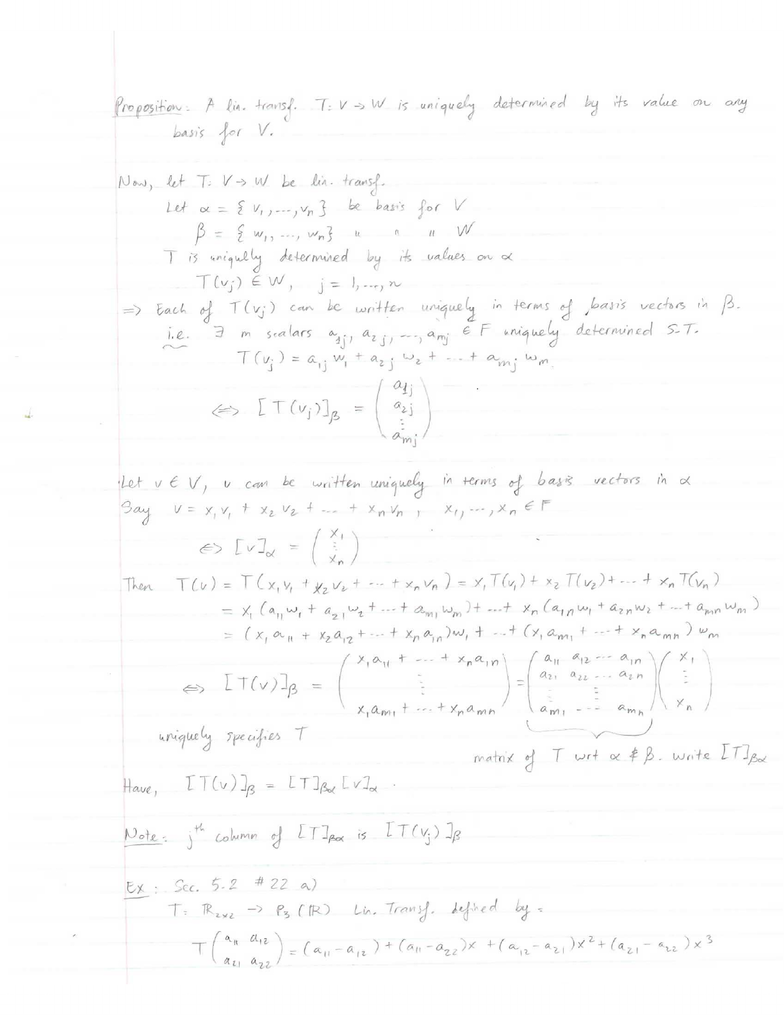 Proposition: A lin. transf. T: V → W is uniquely determined by its value on any
basis for V.
Now, let T: V → W be lin. transf.
Let α = { v₁, ..., vₙ } be basis for V
β = { w₁, ..., wₙ } " " " W
T is uniquelly determined by its values on α
T(vⱼ) ∈ W, j = 1, ..., n
⇒ Each of T(vⱼ) can be written uniquely in terms of basis vectors in β.
i.e. ∃ m scalars a₁ⱼ, a₂ⱼ, ..., aₘⱼ ∈ F uniquely determined S.T.
T(vⱼ) = a₁ⱼ w₁ + a₂ⱼ w₂ + ... + aₘⱼ wₘ.
⇔ [T(vⱼ)]β = ( a₁ⱼ
a₂ⱼ
⋮
aₘⱼ )
Let v ∈ V, v can be written uniquely in terms of basis vectors in α
Say v = x₁v₁ + x₂v₂ + ... + xₙvₙ, x₁, ..., xₙ ∈ F
⇔ [v]α = ( x₁
⋮
xₙ )
Then T(v) = T(x₁v₁ + x₂v₂ + ... + xₙvₙ) = x₁T(v₁) + x₂T(v₂) + ... + xₙT(vₙ)
= x₁(a₁₁w₁ + a₂₁w₂ + ... + aₘ₁wₘ) + ... + xₙ(a₁ₙw₁ + a₂ₙw₂ + ... + aₘₙwₘ)
= (x₁a₁₁ + x₂a₁₂ + ... + xₙa₁ₙ)w₁ + ... + (x₁aₘ₁ + ... + xₙaₘₙ)wₘ
⇔ [T(v)]β = ( x₁a₁₁ + ... + xₙa₁ₙ ) = ( a₁₁ a₁₂ ... a₁ₙ ) ( x₁
⋮ a₂₁ a₂₂ ... a₂ₙ ⋮
⋮ ⋮ ⋮
x₁aₘ₁ + ... + xₙaₘₙ aₘ₁ ... aₘₙ xₙ )
uniquely specifies T
matrix of T wrt α & β. write [T]βα
Have, [T(v)]β = [T]βα [v]α.
Note: jᵗʰ column of [T]βα is [T(vⱼ)]β
Ex: Sec. 5.2 #22 a)
T: ℝ₂ₓ₂ → P₃(ℝ) Lin. Transf. defined by:
T( a₁₁ a₁₂
a₂₁ a₂₂ ) = (a₁₁ - a₁₂) + (a₁₁ - a₂₂)x + (a₁₂ - a₂₁)x² + (a₂₁ - a₂₂)x³